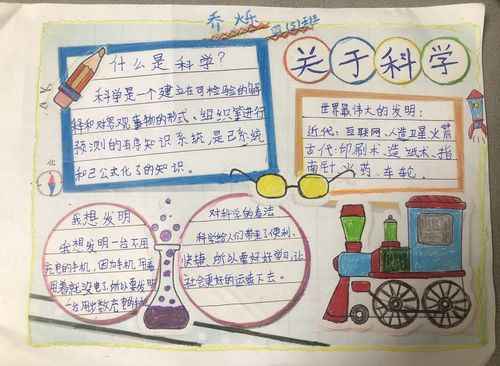 乔烁
四(5)班
关于科学
什么是科学?
科学是一个建立在可检验的解
释和对客观事物的形式、组织等进行
预测的有序知识系统,是已系统
和已公式化了的知识。
世界最伟大的发明:
近代:互联网、人造卫星、火箭
古代:印刷术、造纸术、指
南针、火药、车轮。
我想发明
我想发明一台不用
充电的手机,因为手机用着
用着就没电了,所以要发明
一台用出数充电的
对科学的看法
科学给人们带来了便利、
快捷,所以要好好学习,让
社会更好的运营下去。